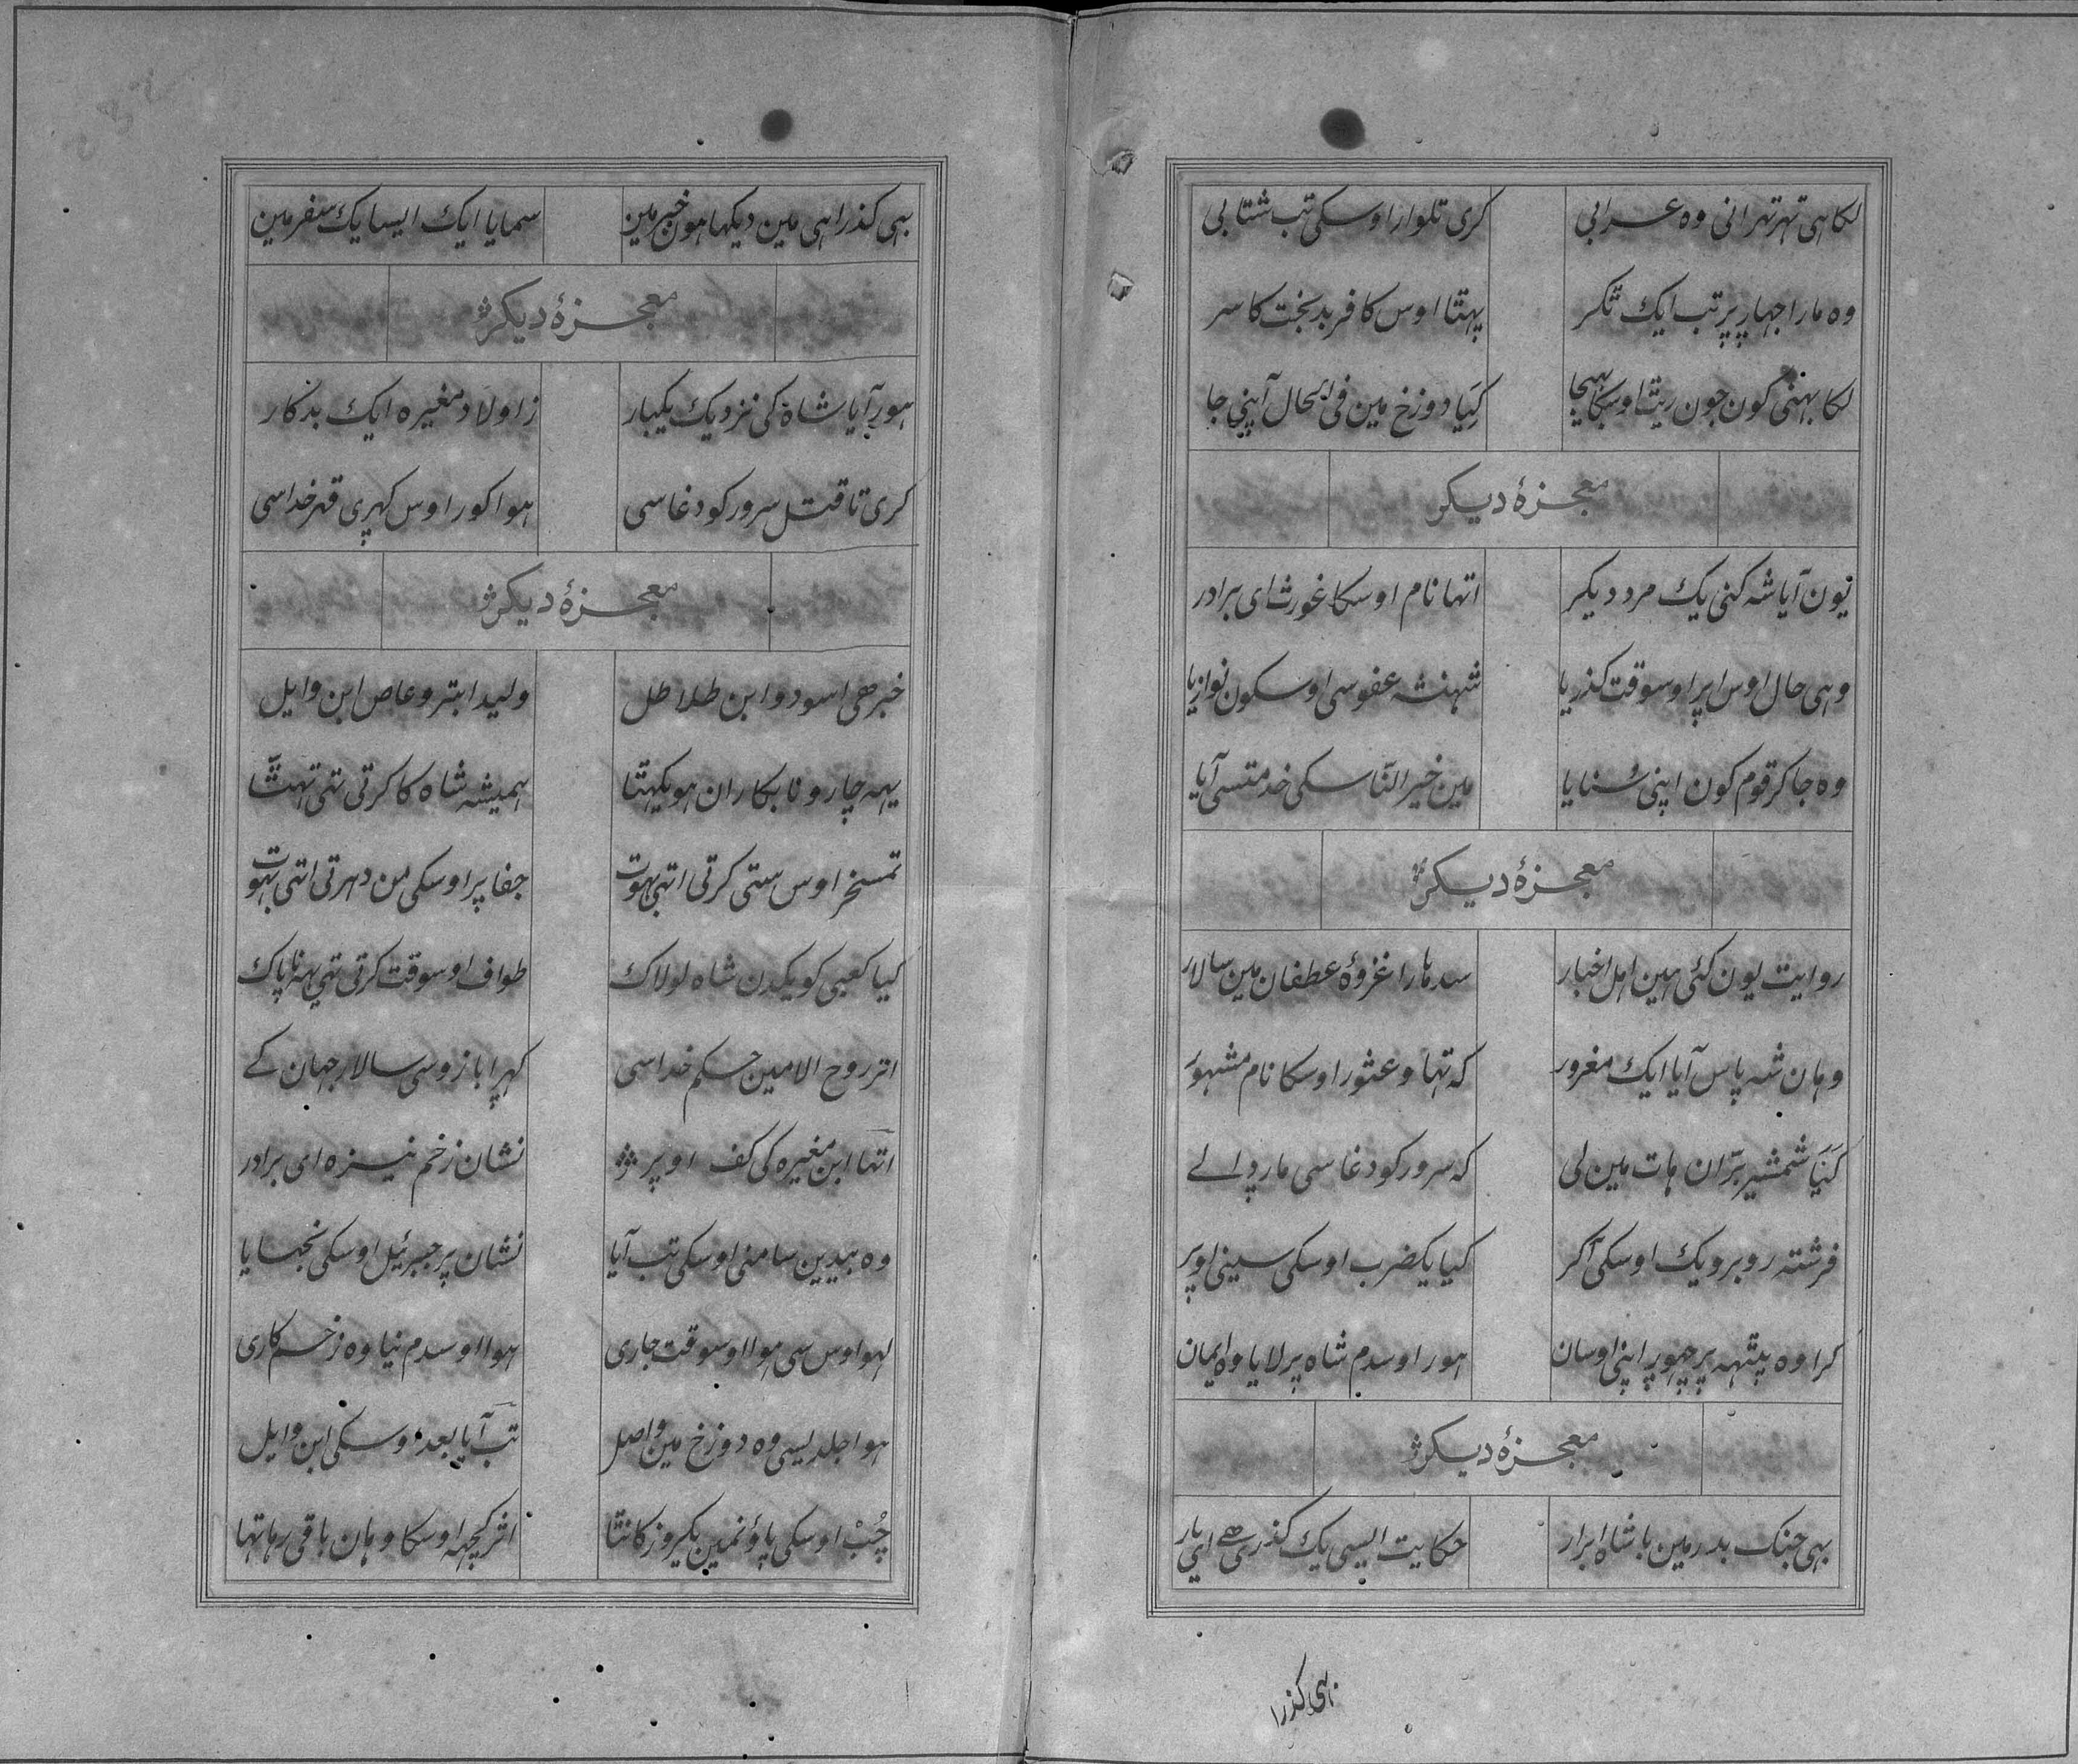 لکاهی تهرتهرانی وه عرابی کری تلوار اوسکی تب شتابی
وه مارا جهاڑ پر تب ایک تکر پهتا اوس کافر بدبخت کا سر
لکا بهنی کون جون ریت اوسکا بهیجا کیا دوزخ مین فی الحال آپنی جا
معجزهٔ دیکر
یون آیا شه کنی یک مرد دیکر اتها نام اوسکا غورث ای برادر
وهی حال اوس اپر اوسوقت کذریا شهنشه عفوسی اوسکون نوازیا
وه جا کر قوم کون اپنی سُنایا مین خیر النّاس کی خدمتسی آیا
معجزهٔ دیکر
روایت یون کئی هین اهل اخبار سدهارا غزوهٔ عطفان مین سالار
وهان شه پاس آیا ایک مغرور که تها وعثور اوسکا نام مشهور
کیَا شمشیر برّان هات مین لی که سرور کو دغا سی مار ڈالے
فرشته روبرو یک اوسکی آکر کیا یکضرب اوسکی سینی اوپر
کرا وه پیتهه پر چهوڑ اپنی اوسان هور اوسدم شاه پر لایا وه ایمان
معجزهٔ دیکر
بهی جنک بدر مین با شاه ابرار حکایت ایسی یک کذری هے ای یار
بهی کذرا
بهی کذرا هی مین دیکها هون خبر مین سمایا ایک ایسا یک سفر مین
معجزهٔ دیکر
هور آیا شاه کی نزدیک یکبار ز اولاد مغیره ایک بدکار
کری تا قتل سرور کو دغا سی هوا کور اوس کهڑی قهر خدا سی
معجزهٔ دیکر
خبر هی اسود و ابن طلاطل ولید ابتر و عاص ابن وایل
یهه چارو نابکاران هو یکهتا همیشه شاه کا کرتی تهی تهتّا
تمسخر اوس ستی کرتی اتهی بهوت جفا پر اوسکی من دهرتی اتهی بهوت
کیا کعبی کو یکدن شاه لولاک طواف اوسوقت کرتی تهی یهه ناپاک
اتر روح الامین حکم خدا سی کهڑا بازو سی سالار جهان کے
اتها ابن مغیره کی کف اوپر نشان زخم نیزه ای برادر
وه بیدین سامنی اوسکی تب آیا نشان پر جبرئیل اوسکی نجهایا
لهو اوس سی هوا اوسوقت جاری هوا اوسدم نیا وه زخم کاری
هوا جلدیسی وه دوزخ مین واصل تب آیا بعد اوسکی ابن وایل
چُبْ اوسکی پاؤنمین یکروز کانتا اثر کچهه اوسکا وهان باقی رهاتها